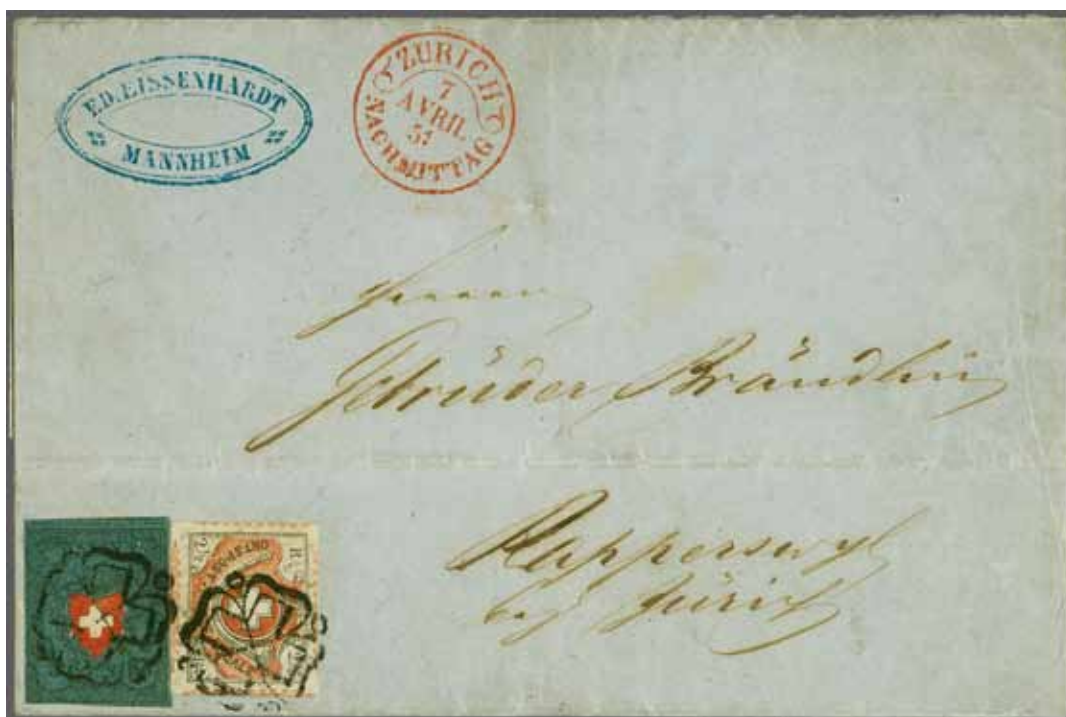 ED. EISSENHARDT
MANNHEIM
ZÜRICH
7
AVRIL
51
NACHMITTAG
Herren
Gebrüder Brändlin
Rapperswyl
bey Zürich